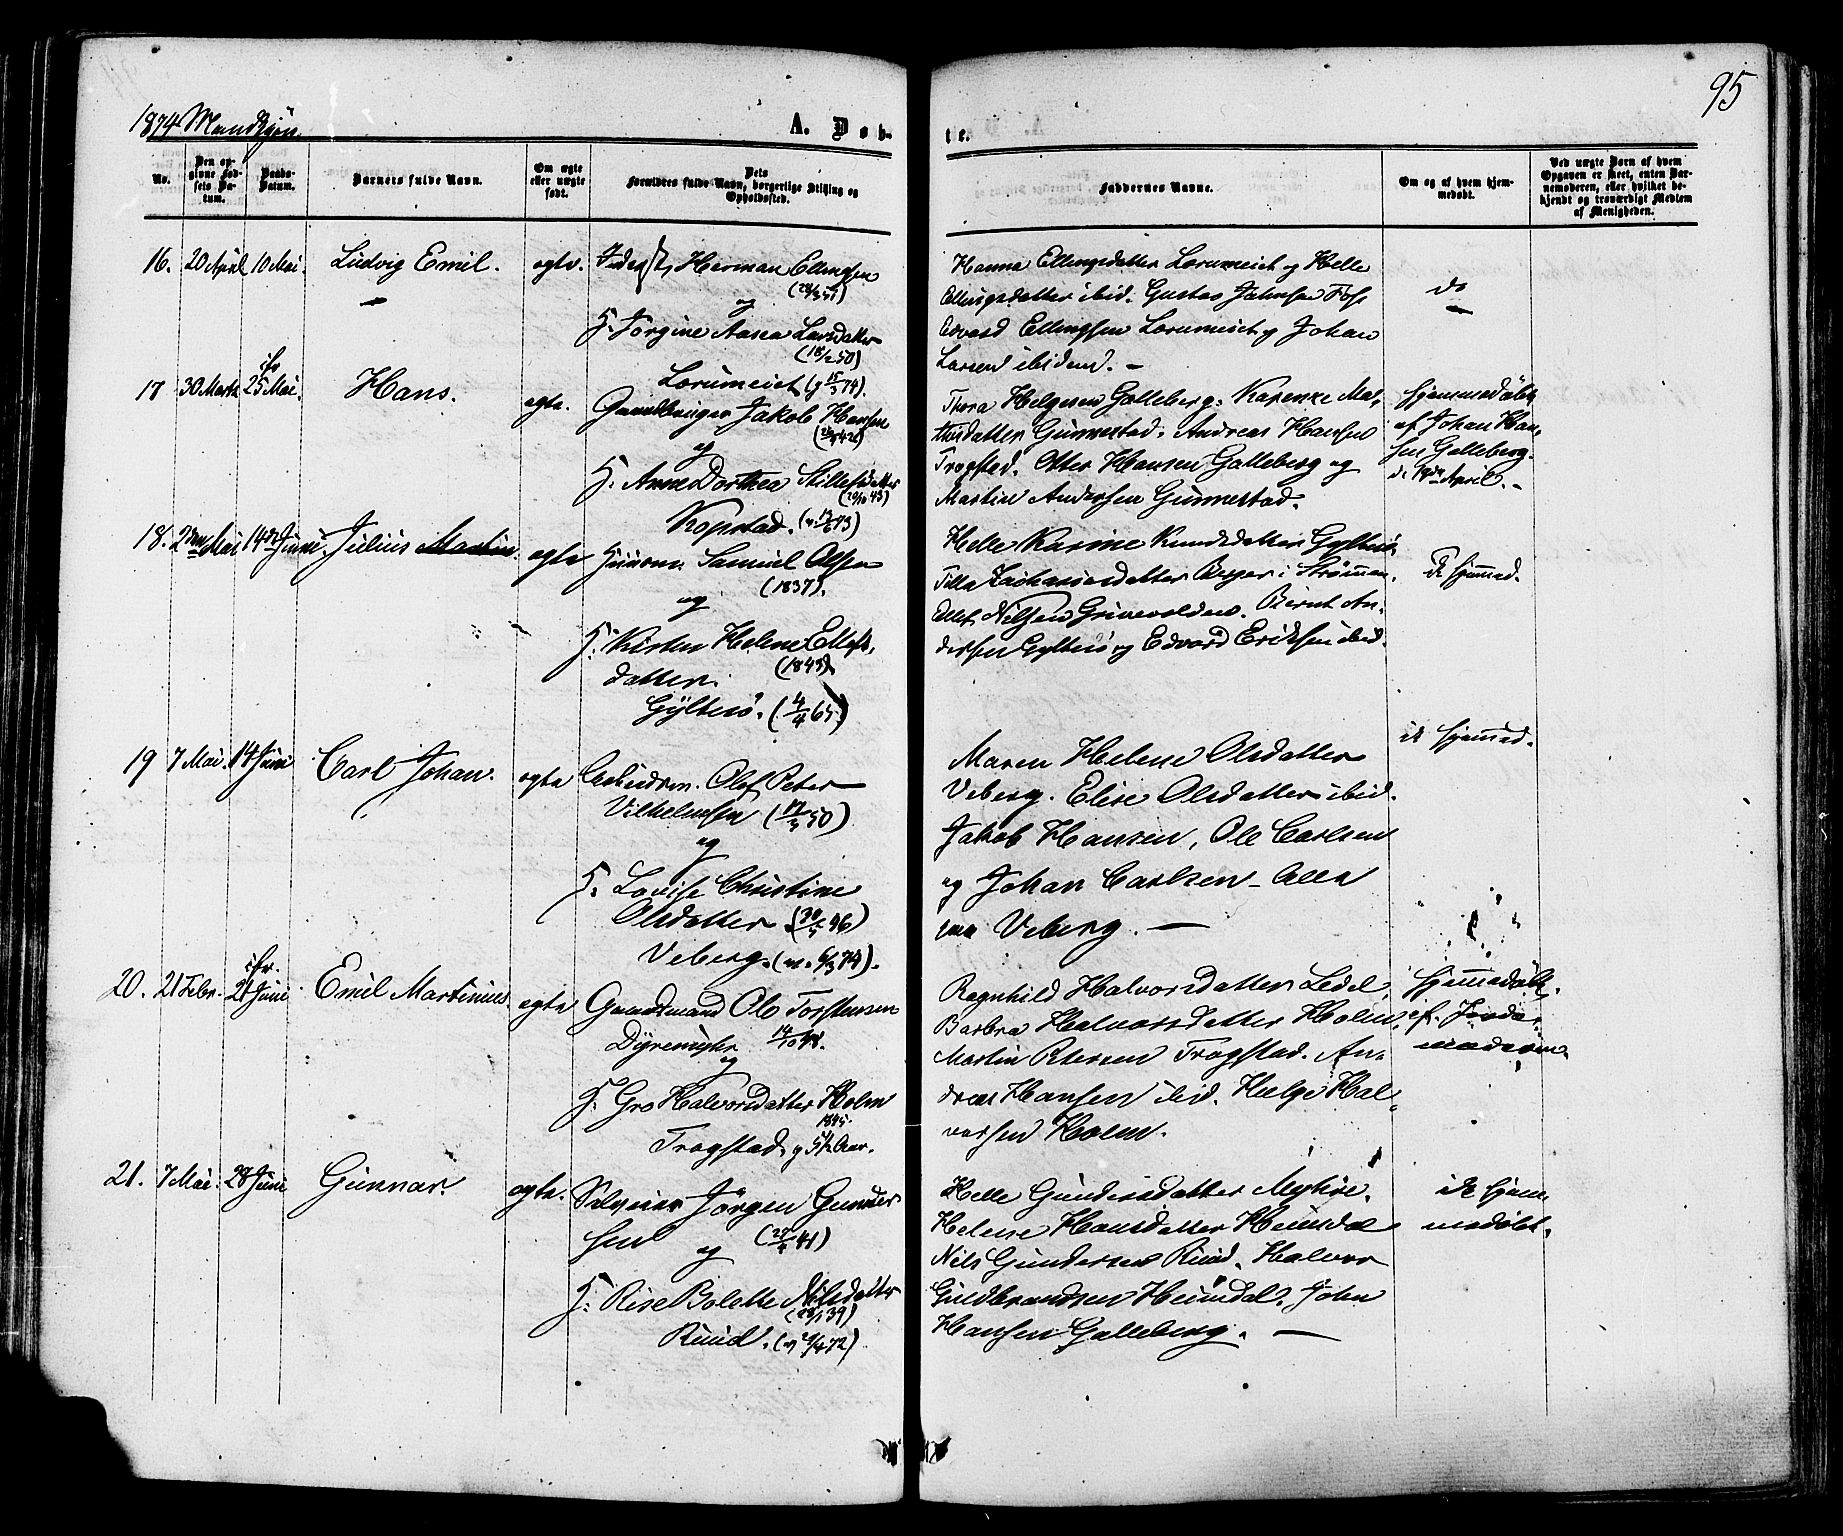 95
1874 Mandkjøn.
A. Døb-
te.
No.
Den op-
givne Fød-
sels Da-
tum.
Daabs-
Datum.
Barnets fulde Navn.
Om ægte
eller uægte
født.
Dets
Forældres fulde Navn, borgerlige Stilling og
Opholdssted.
Faddernes Navne.
Om og af hvem hjem-
medøbt.
Ved uægte Børn af hvem
Opgaven er skeet, enten Bar-
nemoderen, eller hvilket be-
kjendt og troværdigt Medlem
af Menigheden.
16. 20 April 10 Mai. Ludvig Emil. ægte. Herman Ellingsen
og
H. Jørgine Aasea Larsdatter
(18/2 50)
Lorumeiet (g 15/3 74).
Hanna Ellingsdatter Lorumeiet og Helle
Ellingsdatter ibid. Gustav Jahnsen Fos
Edvard Ellingsen Lorumeiet og Johan
Larsen ibidem. —
do
17 30 Marts 25 Mai. Hans. ægte. Gaardbruger Jakob Hansen
og
H. Anne Dorthea Stillefsdatter
Kopstad.
Thora Helgesen Galleberg. Karenke Ma-
thisdatter Gunnestad. Andreas Hansen
Trogstad. Otter Hansen Galleberg og
Martin Andersen Gunnestad.
Hjemmedøbt
af Johan Han-
sen Galleberg
d. 19de April. -
18. 2den Mai 14de Juni. Julius Martin. ægte Huusm. Samuel Olsen
(1837).
og
H. Kirsten Helene Ellefs-
(1843)
datter.
Gylterö. (4/4 65)
Helle Karine Knudsdatter Gylterö
Tilla Zachariasdatter Berger i Strømm.
Ellef Nilsen Grinevolden. Bernt An-
dersen Gylterö og Edvard Eriksen ibid.
ik hjemmed.
19 7 Mai. 14 Juni Carl Johan. ægte Arbeidsm. Olof Peter
Vilhelmsen (12/3 50)
og
H. Lovise Christine
Olsdatter (20/5 46)
Veberg. (v. 6/3 74).
Maren Helene Olsdatter
Veberg. Elise Olsdatter ibid.
Jakob Hansen, Ole Carlsen
og Johan Carlsen - Alle
paa Veberg. —
ik hjemmed.
20. 21 Febr. 21 Juni Emil Martinius ægte Gaardmand Ole Torstensen
og
H. Gro Halvorsdatter Holm
1845.
Trogstad. g 5 1/2 Aar.
Ragnhild Halvorsdatter Ledel,
Barbra Halvorsdatter Holm,
Martin Petersen Trogstad. An-
dreas Hansen ibid. Helge Hal-
vorsen Holm.
Hjemmedøbt
af Jorde-
moderen.
21. 7 Mai. 28 Juni Gunnar. ægte. Selveier Jörgen Gunder-
sen (29/4 41)
og
H. Rise Bolette Nilsdatter
(28/1 39)
Ruud.
Helle Gundersdatter Myhre.
Helene Hansdatter Heimdal
Nils Gundersen Ruud. Halvor
Guldbrandsen Heimdal. John
Hansen Galleberg. —
ik hjem-
medøbt.